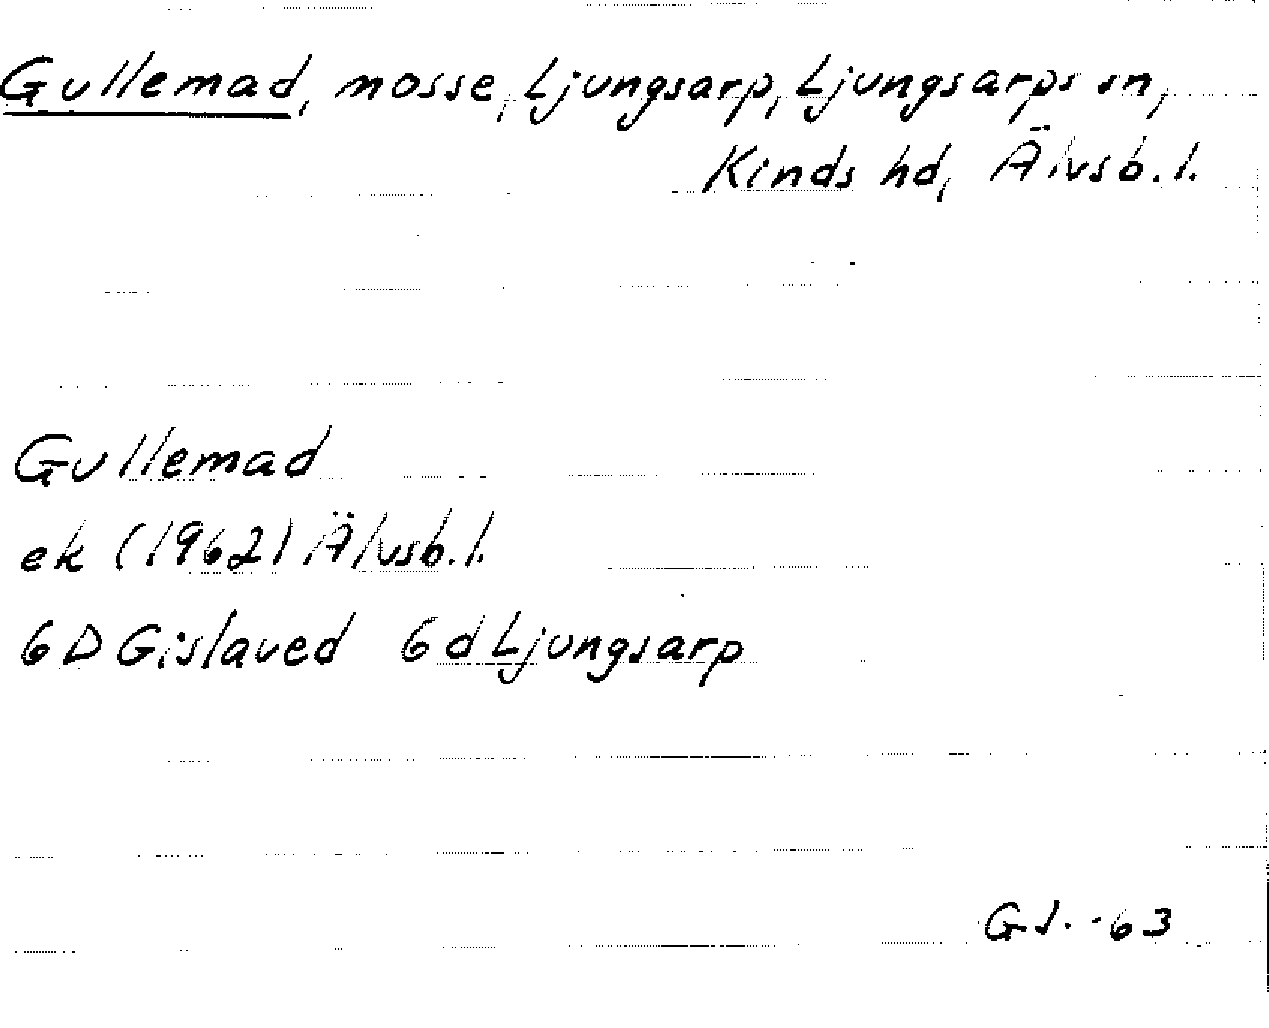 Gullemad, mosse, Ljungsarp, Ljungsarps sn,
Kinds hd, Älvsb. l.
Gullemad
ek (1962) Älvsb. l.
6D Gislaved 6d Ljungsarp
GJ. -63